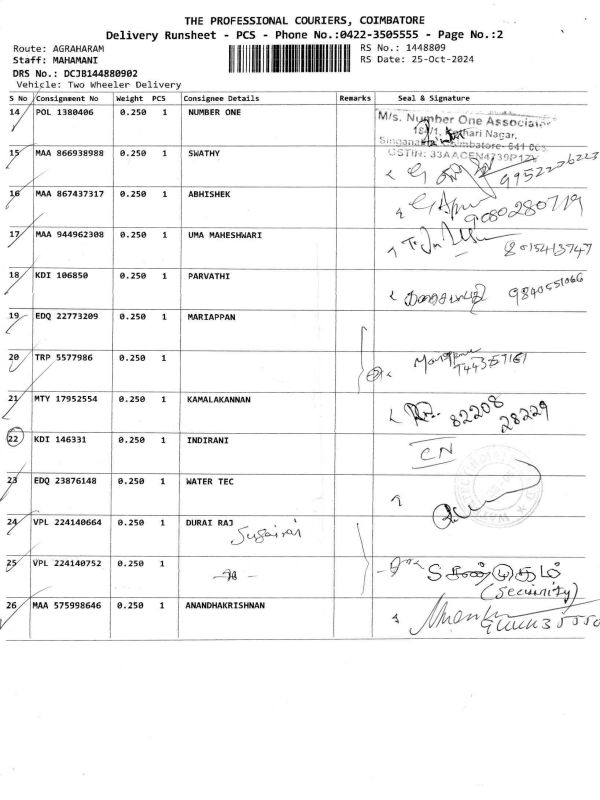 THE PROFESSIONAL COURIERS, COIMBATORE
Delivery Runsheet - PCS - Phone No.:0422-3505555 - Page No.:2
Route: AGRAHARAM RS No.: 1448809
Staff: MAHAMANI RS Date: 25-Oct-2024
DRS No.: DCJB144880902
Vehicle: Two Wheeler Delivery
S No Consignment No Weight PCS Consignee Details Remarks Seal & Signature
14 POL 1380406 0.250 1 NUMBER ONE
M/s. Number One Associates
Nagar,
GSTIN: 33AACEN4739P1ZV
15 MAA 866938988 0.250 1 SWATHY 9952206223
16 MAA 867437317 0.250 1 ABHISHEK 9080280719
17 MAA 944962308 0.250 1 UMA MAHESHWARI 8015413747
18 KDI 106850 0.250 1 PARVATHI 9840551066
19 EDQ 22773209 0.250 1 MARIAPPAN
20 TRP 5577986 0.250 1
21 MTY 17952554 0.250 1 KAMALAKANNAN 82208
28229
22 KDI 146331 0.250 1 INDIRANI CN
23 EDQ 23876148 0.250 1 WATER TEC
24 VPL 224140664 0.250 1 DURAI RAJ
25 VPL 224140752 0.250 1 சண்முகம்
(Security)
26 MAA 575998646 0.250 1 ANANDHAKRISHNAN